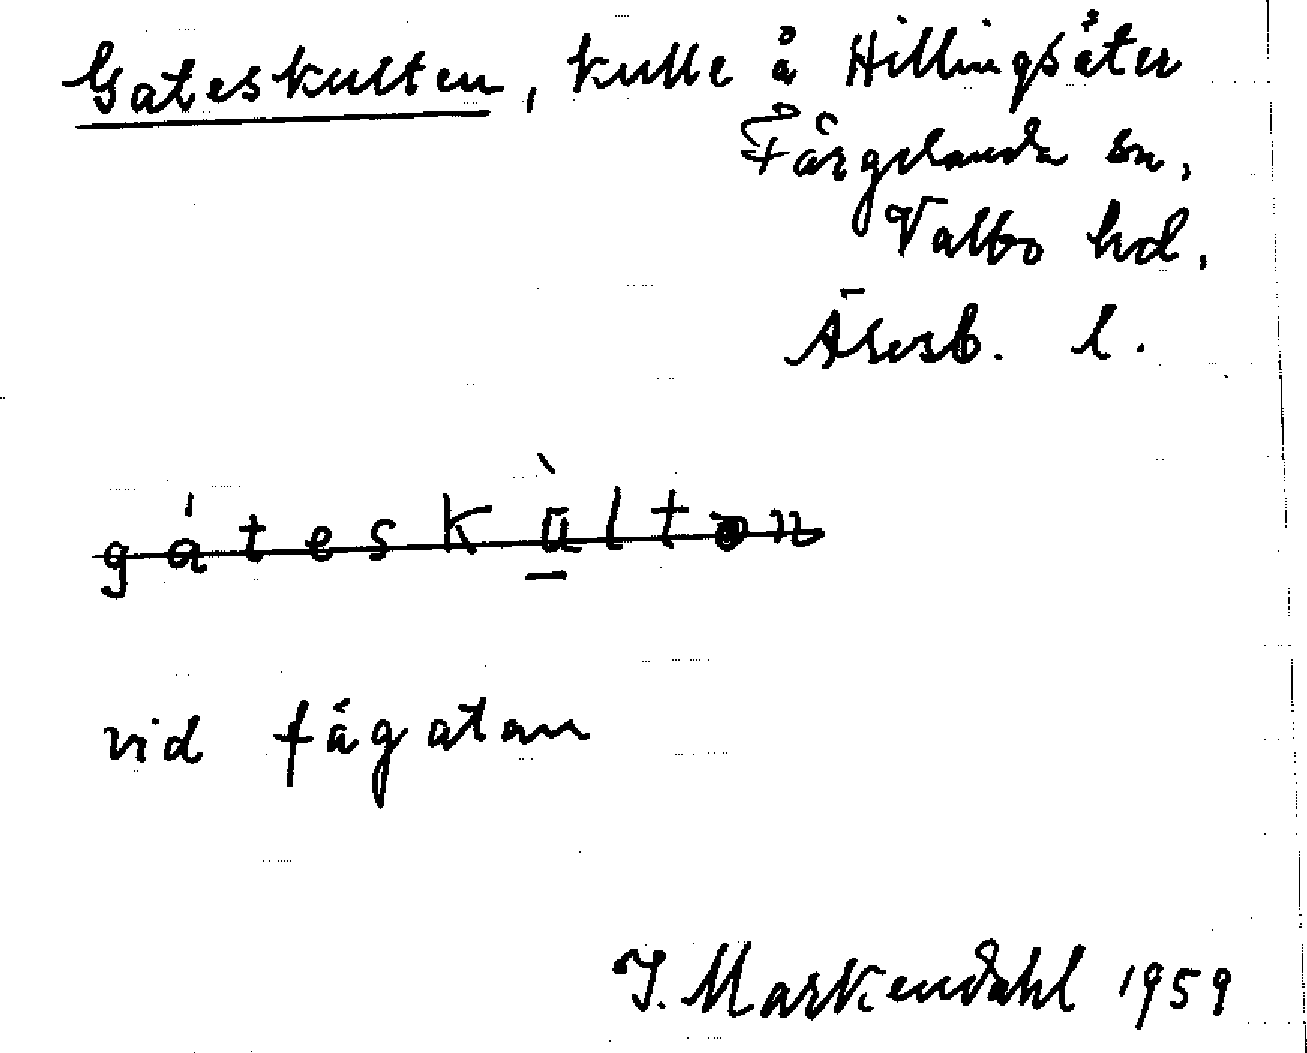 Gateskulten, kulle å Hillingsäter
Färgelanda sn,
Valbo hd,
Älvsb. l.
gáteskùlten
vid fägatan
I. Markendahl 1959